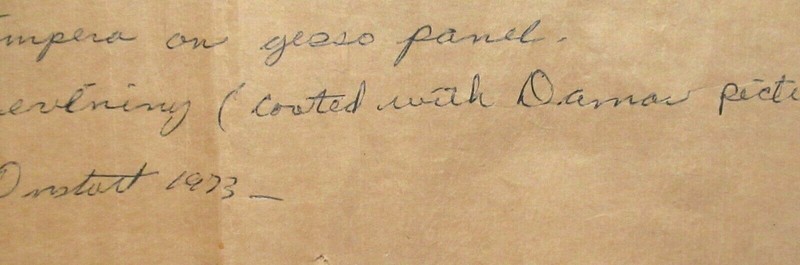 mpera on gesso panel.
(coated with Damar pictu
Onstott 1973 –